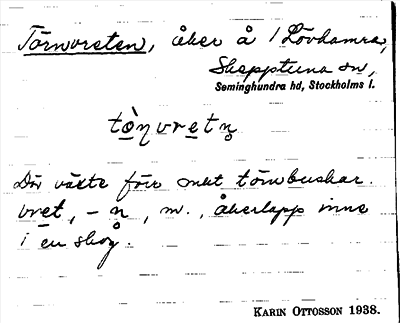 Törnvreten, åker å 1 Lövhamra,
Skepptuna sn,
Seminghundra hd, Stockholms l.
tò̱ṇvre̱tn̥
Där växte förr mest törnbuskar.
vret, -n, m., åkerlapp inne
i en skog.
KARIN OTTOSSON 1938.